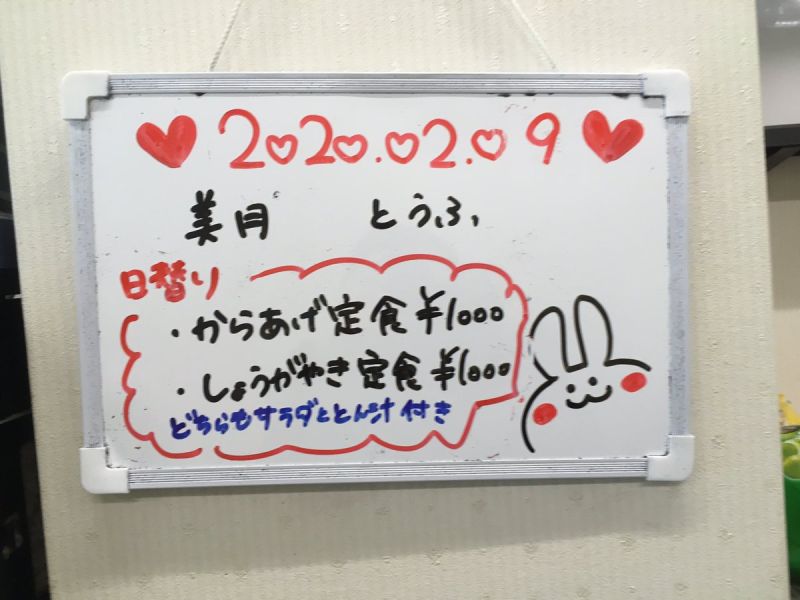 2020.02.09
美月 とうふ
日替り
・からあげ定食 ¥1000
・しょうがやき定食 ¥1000
どちらもサラダととん汁付き